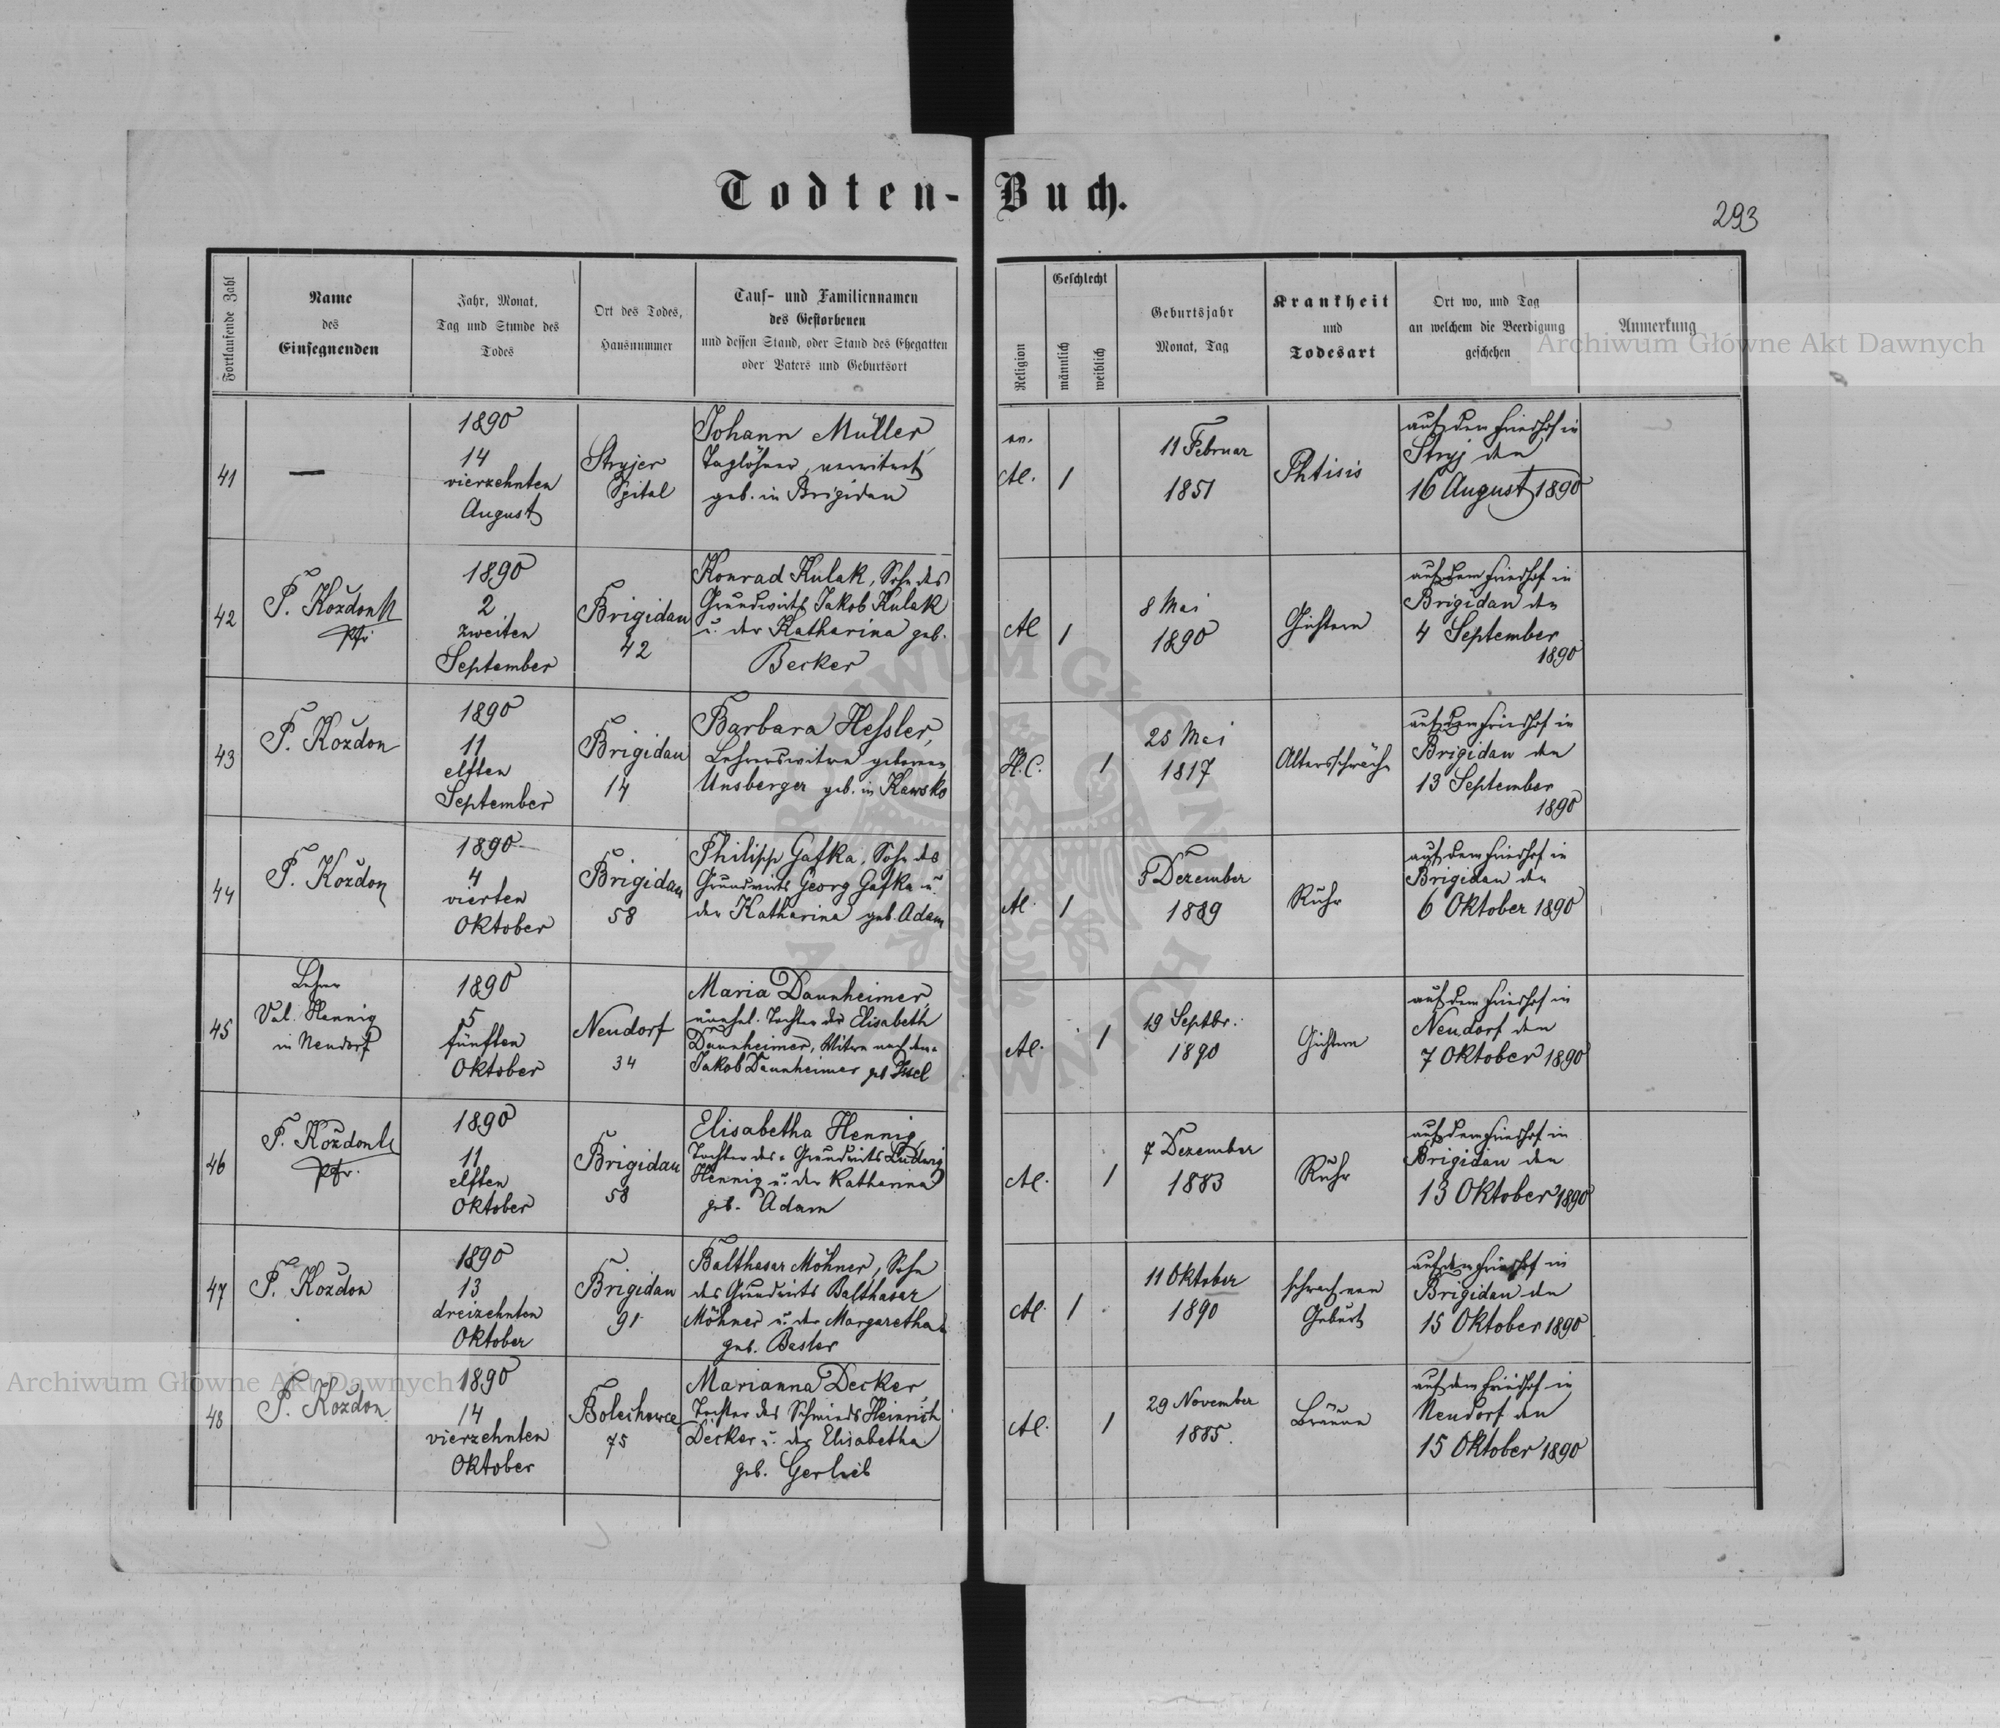 Todten-Buch.
293
Fortlaufende Zahl
Name
des
Einsegnenden
Jahr, Monat,
Tag und Stunde des
Todes
Ort des Todes,
Hausnummer
Tauf- und Familiennamen
des Gestorbenen
und dessen Stand, oder Stand des Ehegatten
oder Vaters und Geburtsort
Religion
Geschlecht
männlich
weiblich
Geburtsjahr
Monat, Tag
Krankheit
und
Todesart
Ort wo, und Tag
an welchem die Beerdigung
geschehen
Anmerkung
Archiwum Główne Akt Dawnych
41
—
1890
14
vierzehnten
August
Stryjer
Spital
Johann Müller,
Taglöhner, verwitwet
geb. in Brigidau
ev.
AC.
1
11 Februar
1851
Phtisis
auf dem Friedhof in
Stryj den
16 August 1890
42
F. Kozdon
Pfr.
1890
2
zweiten
September
Brigidau
42
Konrad Kulak, Sohn des
Grundwirts Jakob Kulak
u. der Katharina geb.
Becker
AC
1
8 Mai
1890
Gichtern
auf dem Friedhof in
Brigidau den
4 September
1890
43
F. Kozdon
1890
11
elften
September
Brigidau
14
Barbara Hessler,
Lehrerswitwe geborene
Unsberger geb. in Kawsko
H.C.
1
25 Mai
1817
Altersschwäche
auf dem Friedhof in
Brigidau den
13 September
1890
44
F. Kozdon
1890
4
vierten
Oktober
Brigidau
58
Philipp Gafka, Sohn des
Grundwirts Georg Gafka u.
der Katharina geb. Adam
AC.
1
5 Dezember
1889
Ruhr
auf dem Friedhof in
Brigidau den
6 Oktober 1890
45
Lehrer
Val. Hennig
in Neudorf
1890
5
fünften
Oktober
Neudorf
34
Maria Daunheimer,
unehel. Tochter der Elisabeth
Daunheimer, Witwe nach dem
Jakob Daunheimer geb.
AC.
1
19 Septbr.
1890
Gichtern
auf dem Friedhof in
Neudorf den
7 Oktober 1890
46
F. Kozdon
Pfr.
1890
11
elften
Oktober
Brigidau
58
Elisabetha Hennig,
Tochter des Grundwirts Ludwig
Hennig u. der Katharina
geb. Adam
AC.
1
7 Dezember
1883
Ruhr
auf dem Friedhof in
Brigidau den
13 Oktober 1890
47
F. Kozdon
1890
13
dreizehnten
Oktober
Brigidau
91
Balthasar Möhner, Sohn
des Grundwirts Balthasar
Möhner u. der Margaretha
geb. Bester
AC.
1
11 Oktober
1890
schwach von
Geburt
auf dem Friedhof in
Brigidau den
15 Oktober 1890
48
F. Kozdon
1890
14
vierzehnten
Oktober
Bolechowce
75
Marianna Decker,
Tochter des Schmieds Heinrich
Decker u. der Elisabetha
geb. Gerlieb
AC.
1
29 November
1885.
Bräune
auf dem Friedhof in
Neudorf den
15 Oktober 1890
Archiwum Główne Akt Dawnych
ARCHIWUM GŁÓWNE AKT DAWNYCH